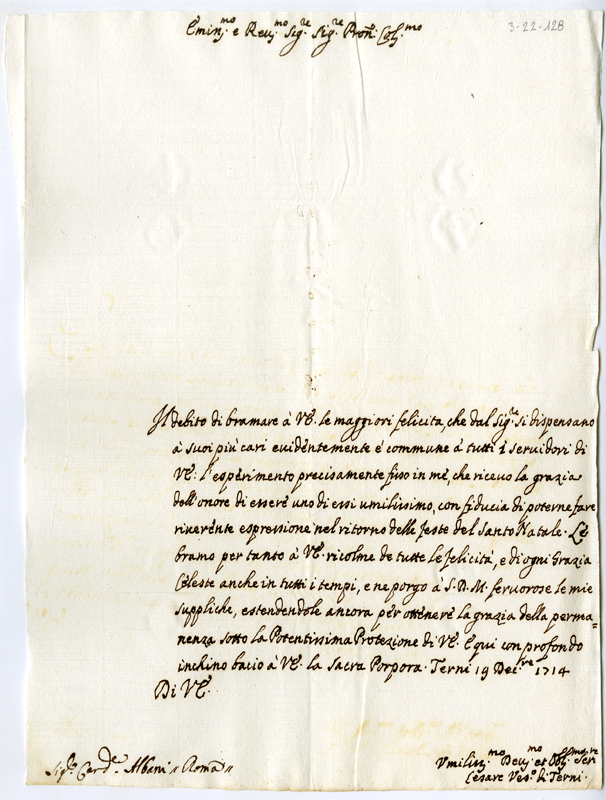 3-22-128
Emin.mo e Rev.mo Sig.re Sig.re Pron. Col.mo
Il debito di bramare à VE. le maggiori felicita, che dal Sig.re si dispensano
à suoi più cari evidentemente è commune à tutti i servidori di
VE. l'esperimento precisamente fisso in mè, che ricevo la grazia
dell'onore di essere uno di essi umilissimo, con fiducia di poterne fare
riverente espressione nel ritorno delle feste del Santo Natale. Le
bramo per tanto à VE. ricolme de tutte le felicità, e di ogni Grazia
Celeste anche in tutti i tempi, e ne porgo à S.D.M. fervorose le mie
suppliche, estendendole ancora per ottenere la grazia della perma=
nenza sotto la Potentissima Protezione di VE. E qui con profondo
inchino bacio à VE. la Sacra Porpora. Terni 19 Dec.bre 1714
Di VE.
Sig. Card. Albani "Roma"
Vmiliss.mo Dev.mo et Obl.mo Ser.re
Cesare Ves.o di Terni.